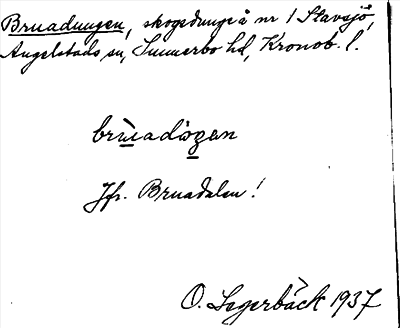 Bruadungen, skogsdunge å nr 1 Stavsjö,
Angelstads sn, Sunnerbo hd, Kronob. l.
Jfr. Bruadalen!
O. Lagerbäck 1937